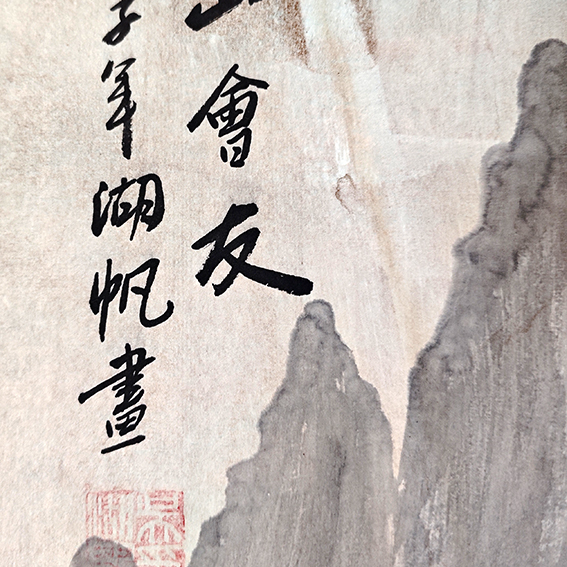 山會友
子年湖帆畫